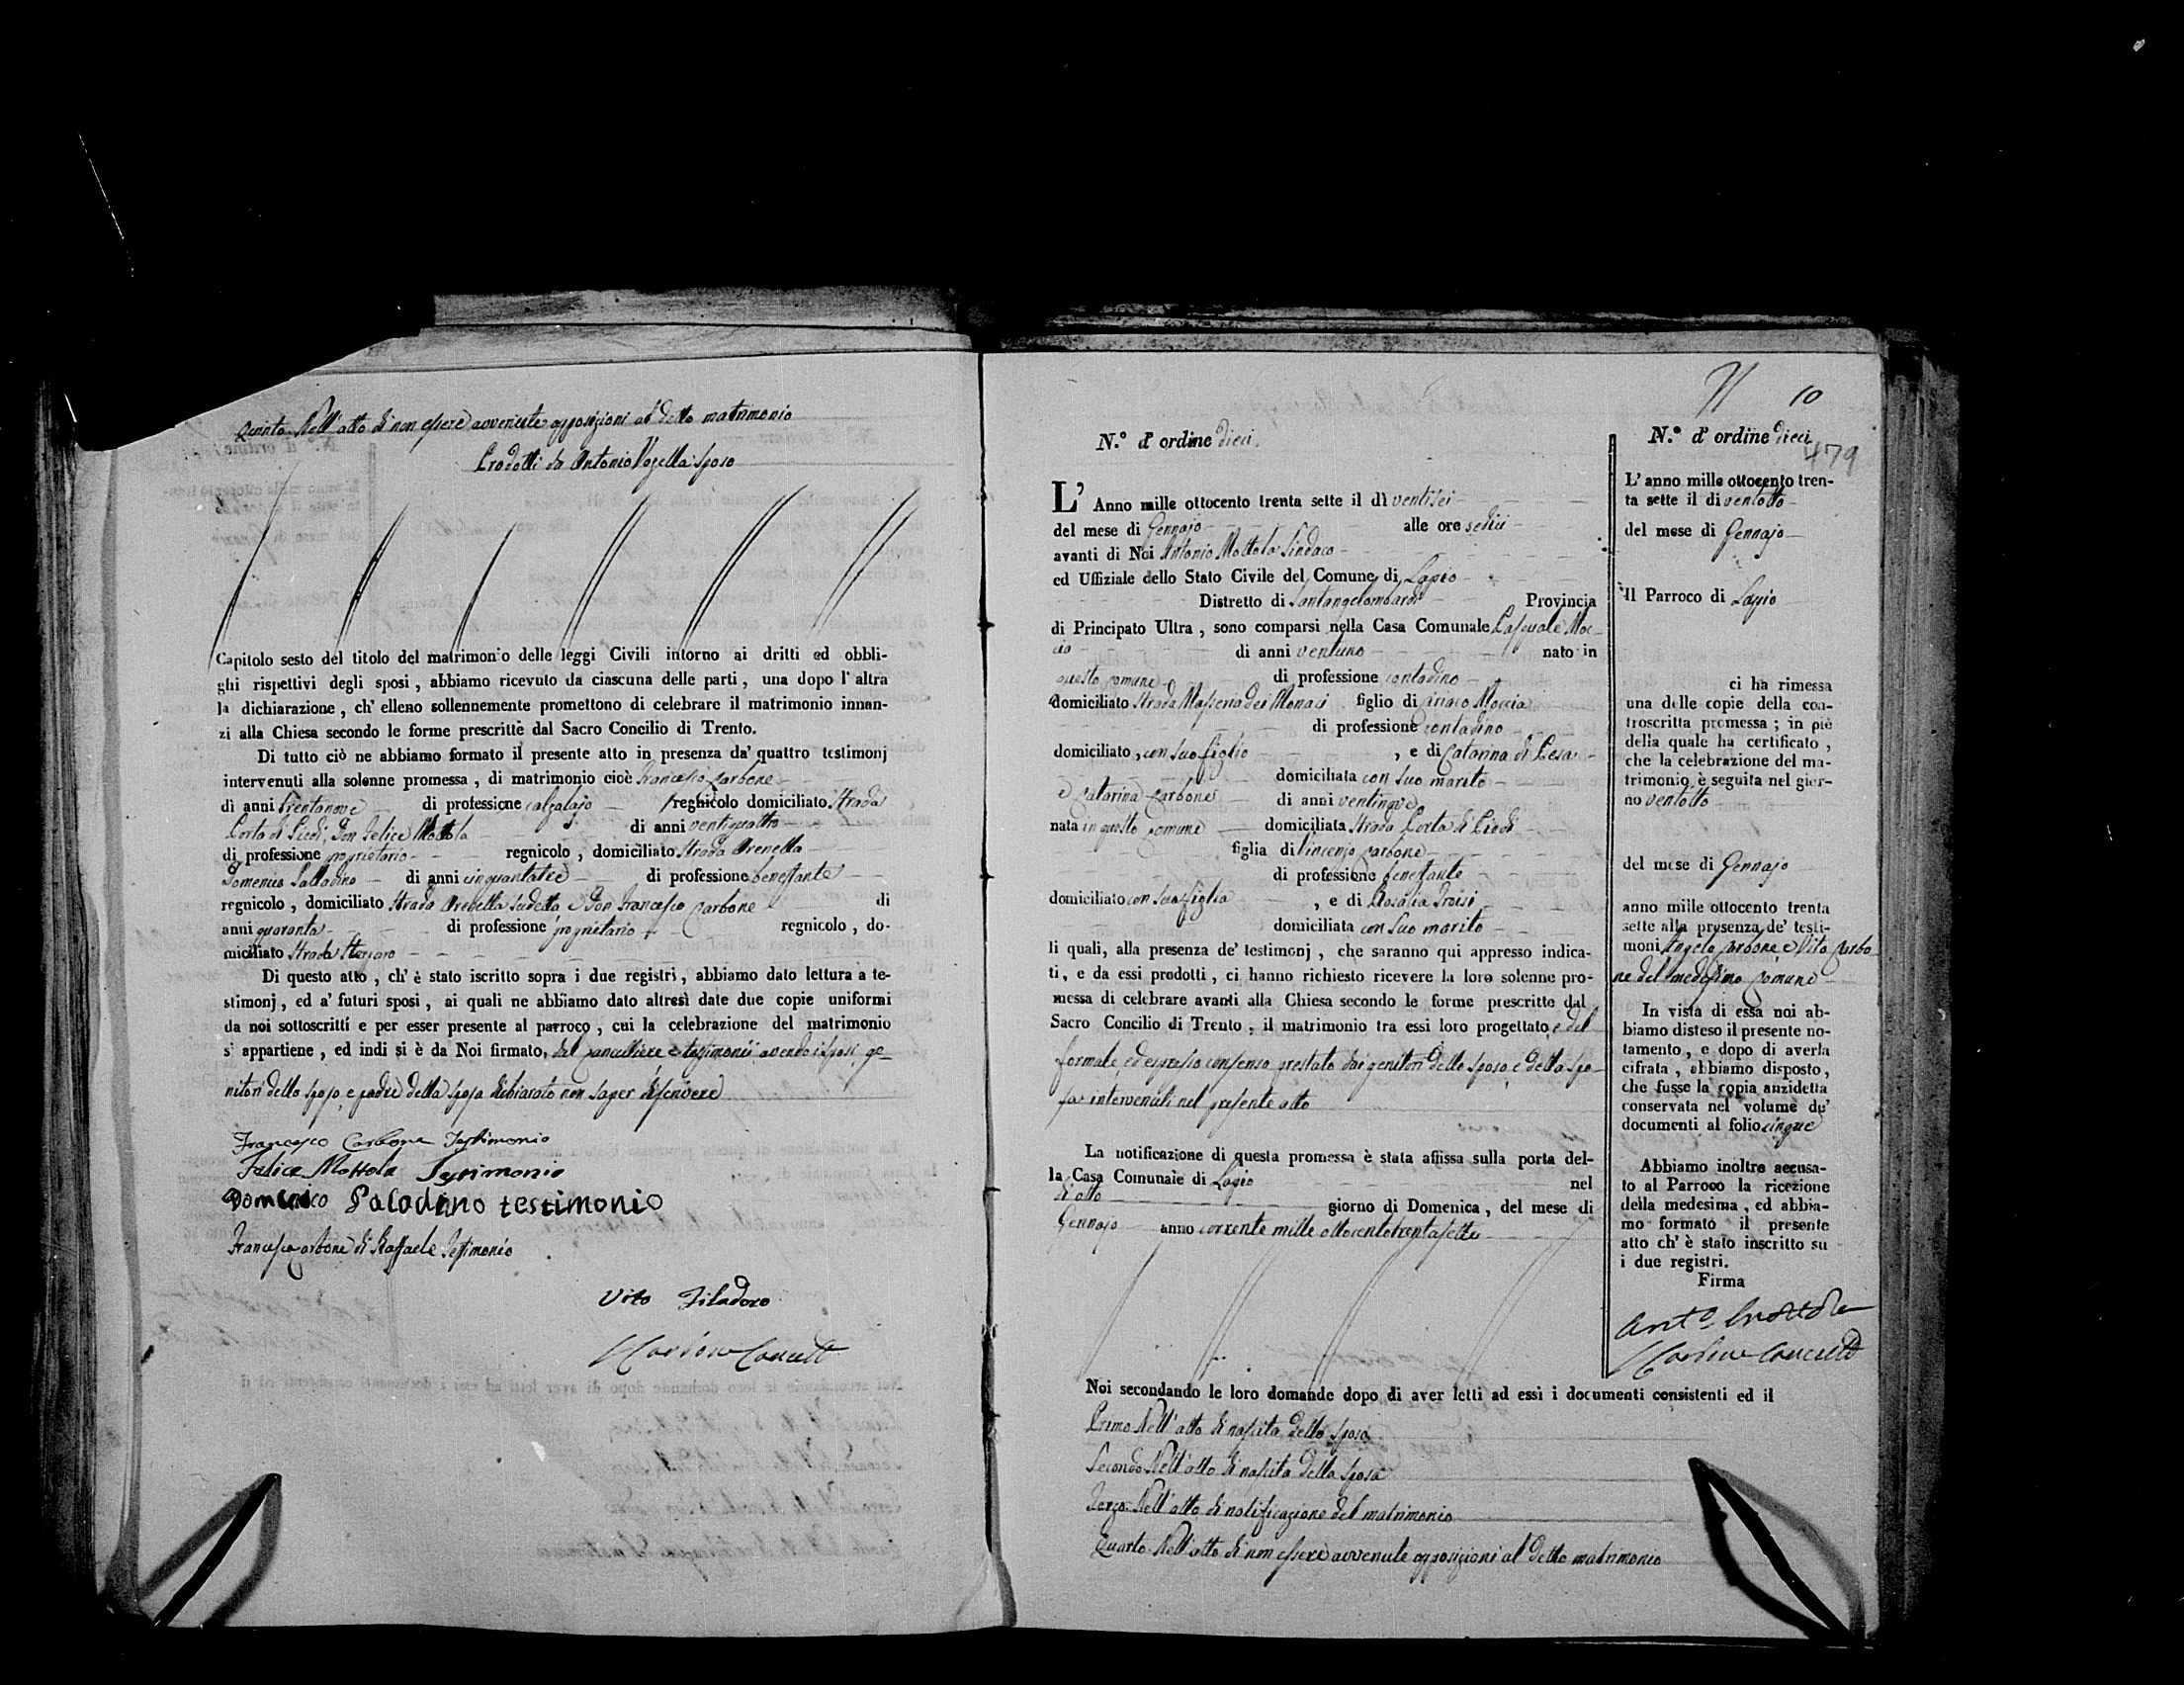 Quinto. Nell'atto di non essere avvenute opposizioni al detto matrimonio
Prodotti da Antonio Vozella sposo
Capitolo sesto del titolo del matrimonio delle leggi Civili intorno ai dritti ed obbli-
ghi rispettivi degli sposi, abbiamo ricevuto da ciascuna delle parti, una dopo l'altra
la dichiarazione, ch'elleno sollennemente promettono di celebrare il matrimonio innan-
zi alla Chiesa secondo le forme prescritte dal Sacro Concilio di Trento.
Di tutto ciò ne abbiamo formato il presente atto in presenza da' quattro testimonj
intervenuti alla solenne promessa, di matrimonio cioè Francesco Carbone
di anni trentanove di professione calzolajo regnicolo domiciliato Strada
Porta di Piedi, Don Felice Mottola di anni ventiquattro
di professione proprietario regnicolo, domiciliato Strada Arenella
Domenico Palladino di anni cinquantatre di professione benestante
regnicolo, domiciliato Strada Arenella sudetta e Don Francesco Carbone di
anni quaranta di professione proprietario regnicolo, do-
miciliato Strada
Di questo atto, ch'è stato iscritto sopra i due registri, abbiamo dato lettura a te-
stimonj, ed a' futuri sposi, ai quali ne abbiamo dato altresì date due copie uniformi
da noi sottoscritti e per esser presente al parroco, cui la celebrazione del matrimonio
si appartiene, ed indi si è da Noi firmato, dal Cancelliere e testimonii avendo i sposi, ge-
nitori dello sposo, e padre della sposa dichiarato non saper scrivere
Francesco Carbone Testimonio
Felice Mottola Testimonio
Domenico Paladino testimonio
Francesco Carbone di Raffaele Testimonio
Vito Filadoro
10
N.° d'ordine dieci
L'Anno mille ottocento trenta sette il dì ventisei
del mese di Gennajo alle ore sedici
avanti di Noi Antonio Mottola Sindaco
ed Uffiziale dello Stato Civile del Comune di Lapio
Distretto di Santangelombardi Provincia
di Principato Ultra, sono comparsi nella Casa Comunale Pasquale Moc-
cia di anni ventuno nato in
questo comune di professione contadino
domiciliato Strada Masseria dei Monaci figlio di Ciriaco Moccia
di professione contadino
domiciliato, con suo figlio, e di Catarina di Piesa
domiciliata con suo marito
e Catarina Carbone di anni ventinove
nata in questo comune domiciliata Strada Porta di Piedi
figlia di Vincenzo Carbone
di professione benestante
domiciliato con sua figlia, e di Rosalia Troisi
domiciliata con suo marito
li quali, alla presenza de' testimonj, che saranno qui appresso indica-
ti, e da essi prodotti, ci hanno richiesto ricevere la loro solenne pro-
messa di celebrare avanti alla Chiesa secondo le forme prescritte dal
Sacro Concilio di Trento, il matrimonio tra essi loro progettato, e del
formale ed espresso consenso prestato dai genitori dello sposo, e della spo-
sa intervenuti nel presente atto
La notificazione di questa promessa è stata affissa sulla porta del-
la Casa Comunale di Lapio nel
dì otto giorno di Domenica, del mese di
Gennajo anno corrente mille ottocento trentasette
Noi secondando le loro domande dopo di aver letti ad essi i documenti consistenti ed il
Primo Nell'atto di nascita dello sposo
Secondo Nell'atto di nascita della sposa
Terzo Nell'atto di notificazione del matrimonio
Quarto Nell'atto di non essere avvenute opposizioni al detto matrimonio
N.° d'ordine dieci
479
L'anno mille ottocento tren-
ta sette il di ventotto
del mese di Gennajo
Il Parroco di Lapio
ci ha rimessa
una delle copie della con-
troscritta promessa; in piè
della quale ha certificato,
che la celebrazione del ma-
trimonio è seguita nel gior-
no ventotto
del mese di Gennajo
anno mille ottocento trenta
sette alla presenza de' testi-
moni Angelo Carbone, e Vito Carbo
ne del medesimo Comune
In vista di essa noi ab-
biamo disteso il presente no-
tamento, e dopo di averla
cifrata, abbiamo disposto,
che fusse la copia anzidetta
conservata nel volume de'
documenti al folio cinque
Abbiamo inoltre accusa-
to al Parroco la ricezione
della medesima, ed abbia-
mo formato il presente
atto ch'è stato inscritto su
i due registri.
Firma
Ant.o Mottola